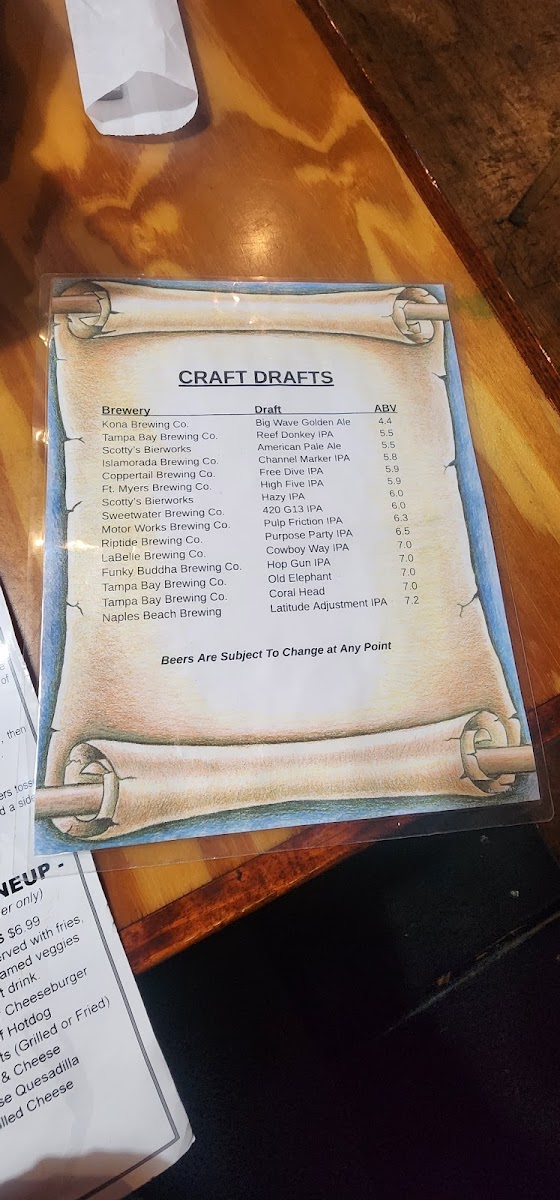 CRAFT DRAFTS
Brewery Draft ABV
Kona Brewing Co. Big Wave Golden Ale 4.4
Tampa Bay Brewing Co. Reef Donkey IPA 5.5
Scotty's Bierworks American Pale Ale 5.5
Islamorada Brewing Co. Channel Marker IPA 5.8
Coppertail Brewing Co. Free Dive IPA 5.9
Ft. Myers Brewing Co. High Five IPA 5.9
Scotty's Bierworks Hazy IPA 6.0
Sweetwater Brewing Co. 420 G13 IPA 6.0
Motor Works Brewing Co. Pulp Friction IPA 6.3
Riptide Brewing Co. Purpose Party IPA 6.5
LaBelle Brewing Co. Cowboy Way IPA 7.0
Funky Buddha Brewing Co. Hop Gun IPA 7.0
Tampa Bay Brewing Co. Old Elephant 7.0
Tampa Bay Brewing Co. Coral Head 7.0
Naples Beach Brewing Latitude Adjustment IPA 7.2
Beers Are Subject To Change at Any Point
of
, then
ers toss
d a sid
NEUP -
er only)
$6.99
erved with fries,
amed veggies
t drink.
Cheeseburger
f Hotdog
ts (Grilled or Fried)
& Cheese
se Quesadilla
illed Cheese